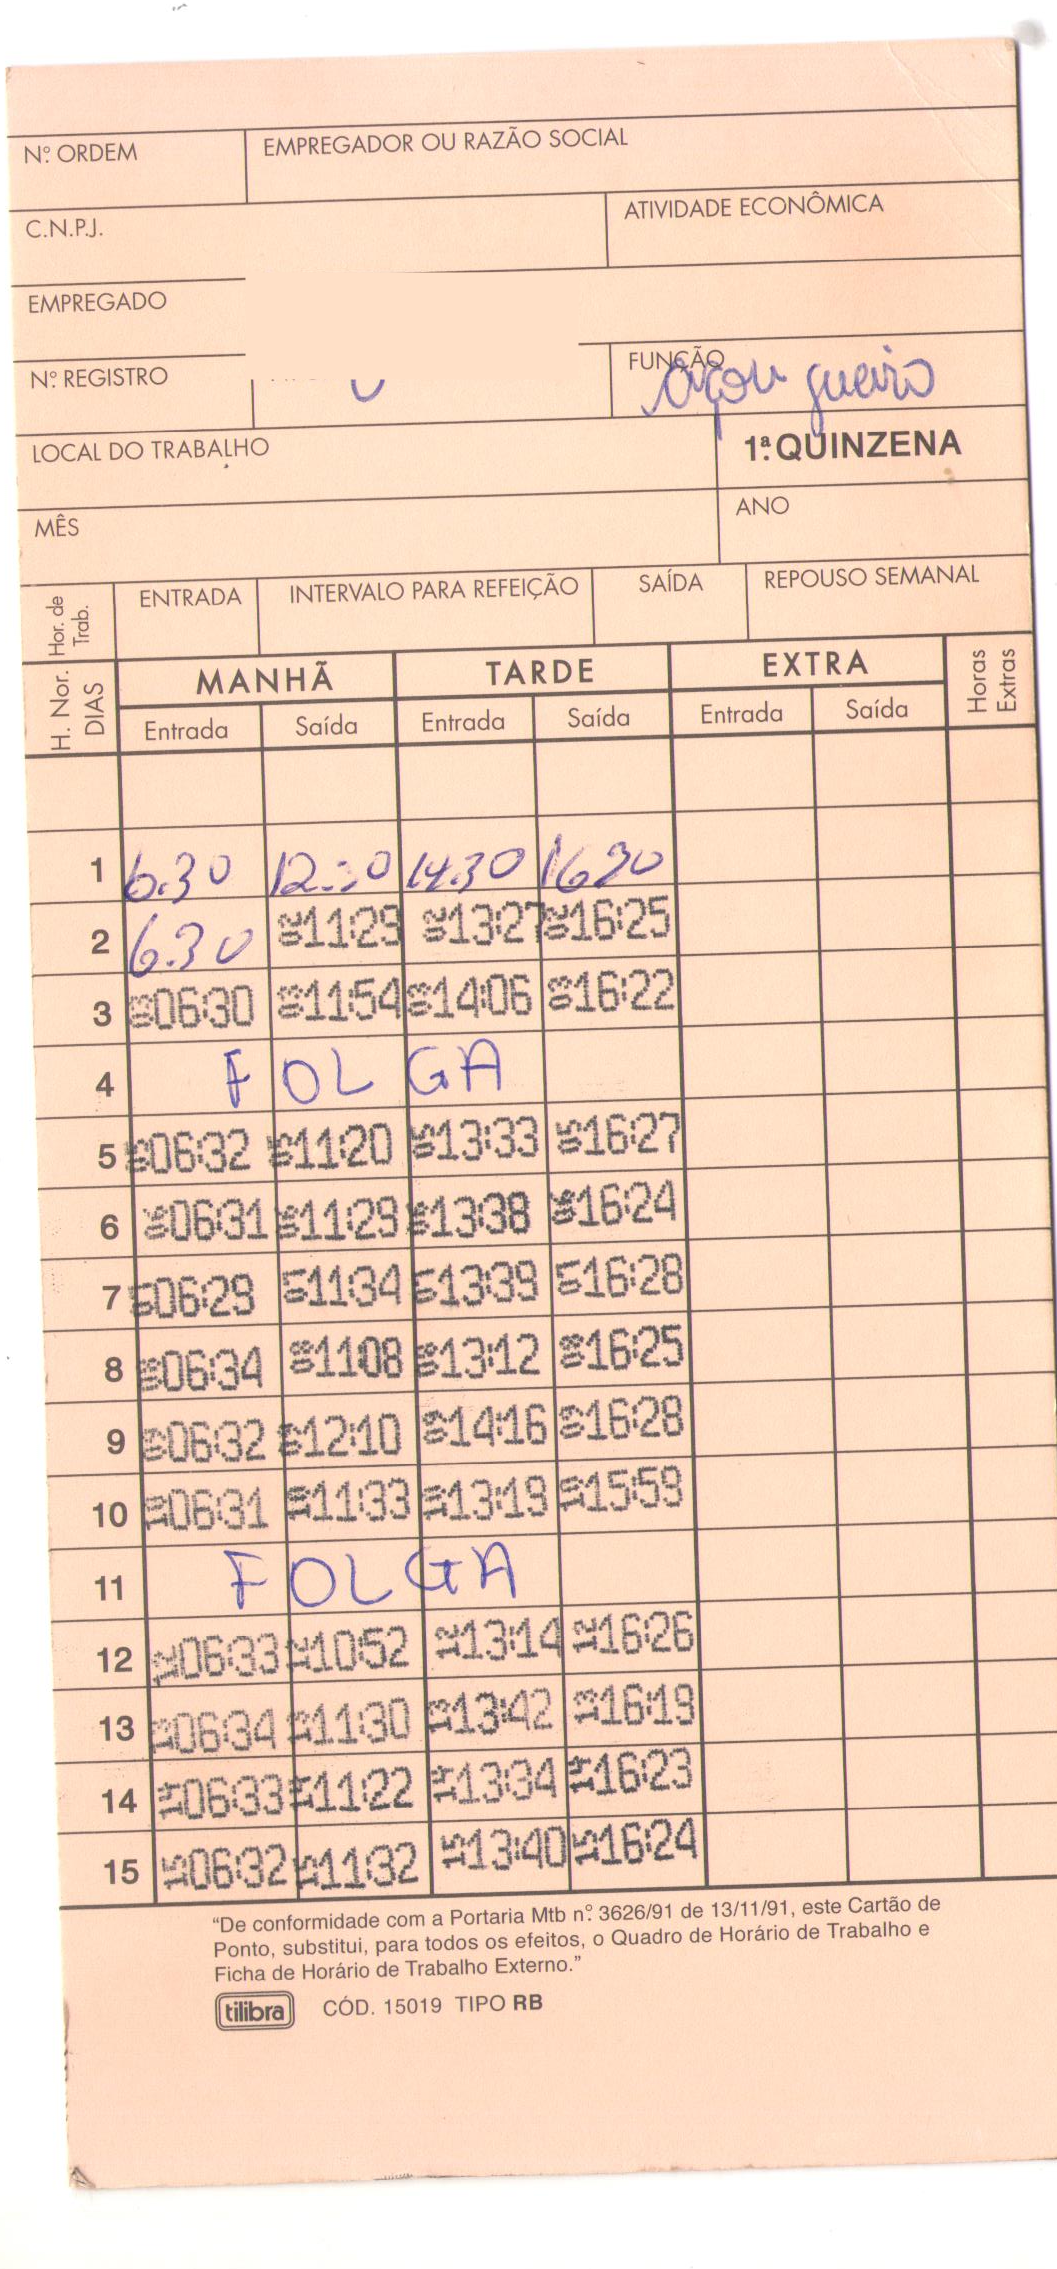 Nº ORDEM EMPREGADOR OU RAZÃO SOCIAL
C.N.P.J. ATIVIDADE ECONÔMICA
EMPREGADO
Nº REGISTRO FUNÇÃO açougueiro
LOCAL DO TRABALHO 1ª QUINZENA
MÊS ANO
Hor. de Trab. ENTRADA INTERVALO PARA REFEIÇÃO SAÍDA REPOUSO SEMANAL
H. Nor. DIAS MANHÃ TARDE EXTRA Horas Extras
Entrada Saída Entrada Saída Entrada Saída
1 6.30 12:30 14.30 1630
2 6.30 02 11:29 02 13:27 02 16:25
3 03 06:30 03 11:54 03 14:06 03 16:22
4 FOLGA
5 05 06:32 05 11:20 05 13:33 05 16:27
6 06 06:31 06 11:29 06 13:38 06 16:24
7 07 06:29 07 11:34 07 13:39 07 16:28
8 08 06:34 08 11:08 08 13:12 08 16:25
9 09 06:32 09 12:10 09 14:16 09 16:28
10 10 06:31 10 11:33 10 13:19 10 15:59
11 FOLGA
12 12 06:33 12 10:52 12 13:14 12 16:26
13 13 06:34 13 11:30 13 13:42 13 16:19
14 14 06:33 14 11:22 14 13:34 14 16:23
15 15 06:32 15 11:32 15 13:40 15 16:24
“De conformidade com a Portaria Mtb nº 3626/91 de 13/11/91, este Cartão de
Ponto, substitui, para todos os efeitos, o Quadro de Horário de Trabalho e
Ficha de Horário de Trabalho Externo.”
tilibra CÓD. 15019 TIPO RB